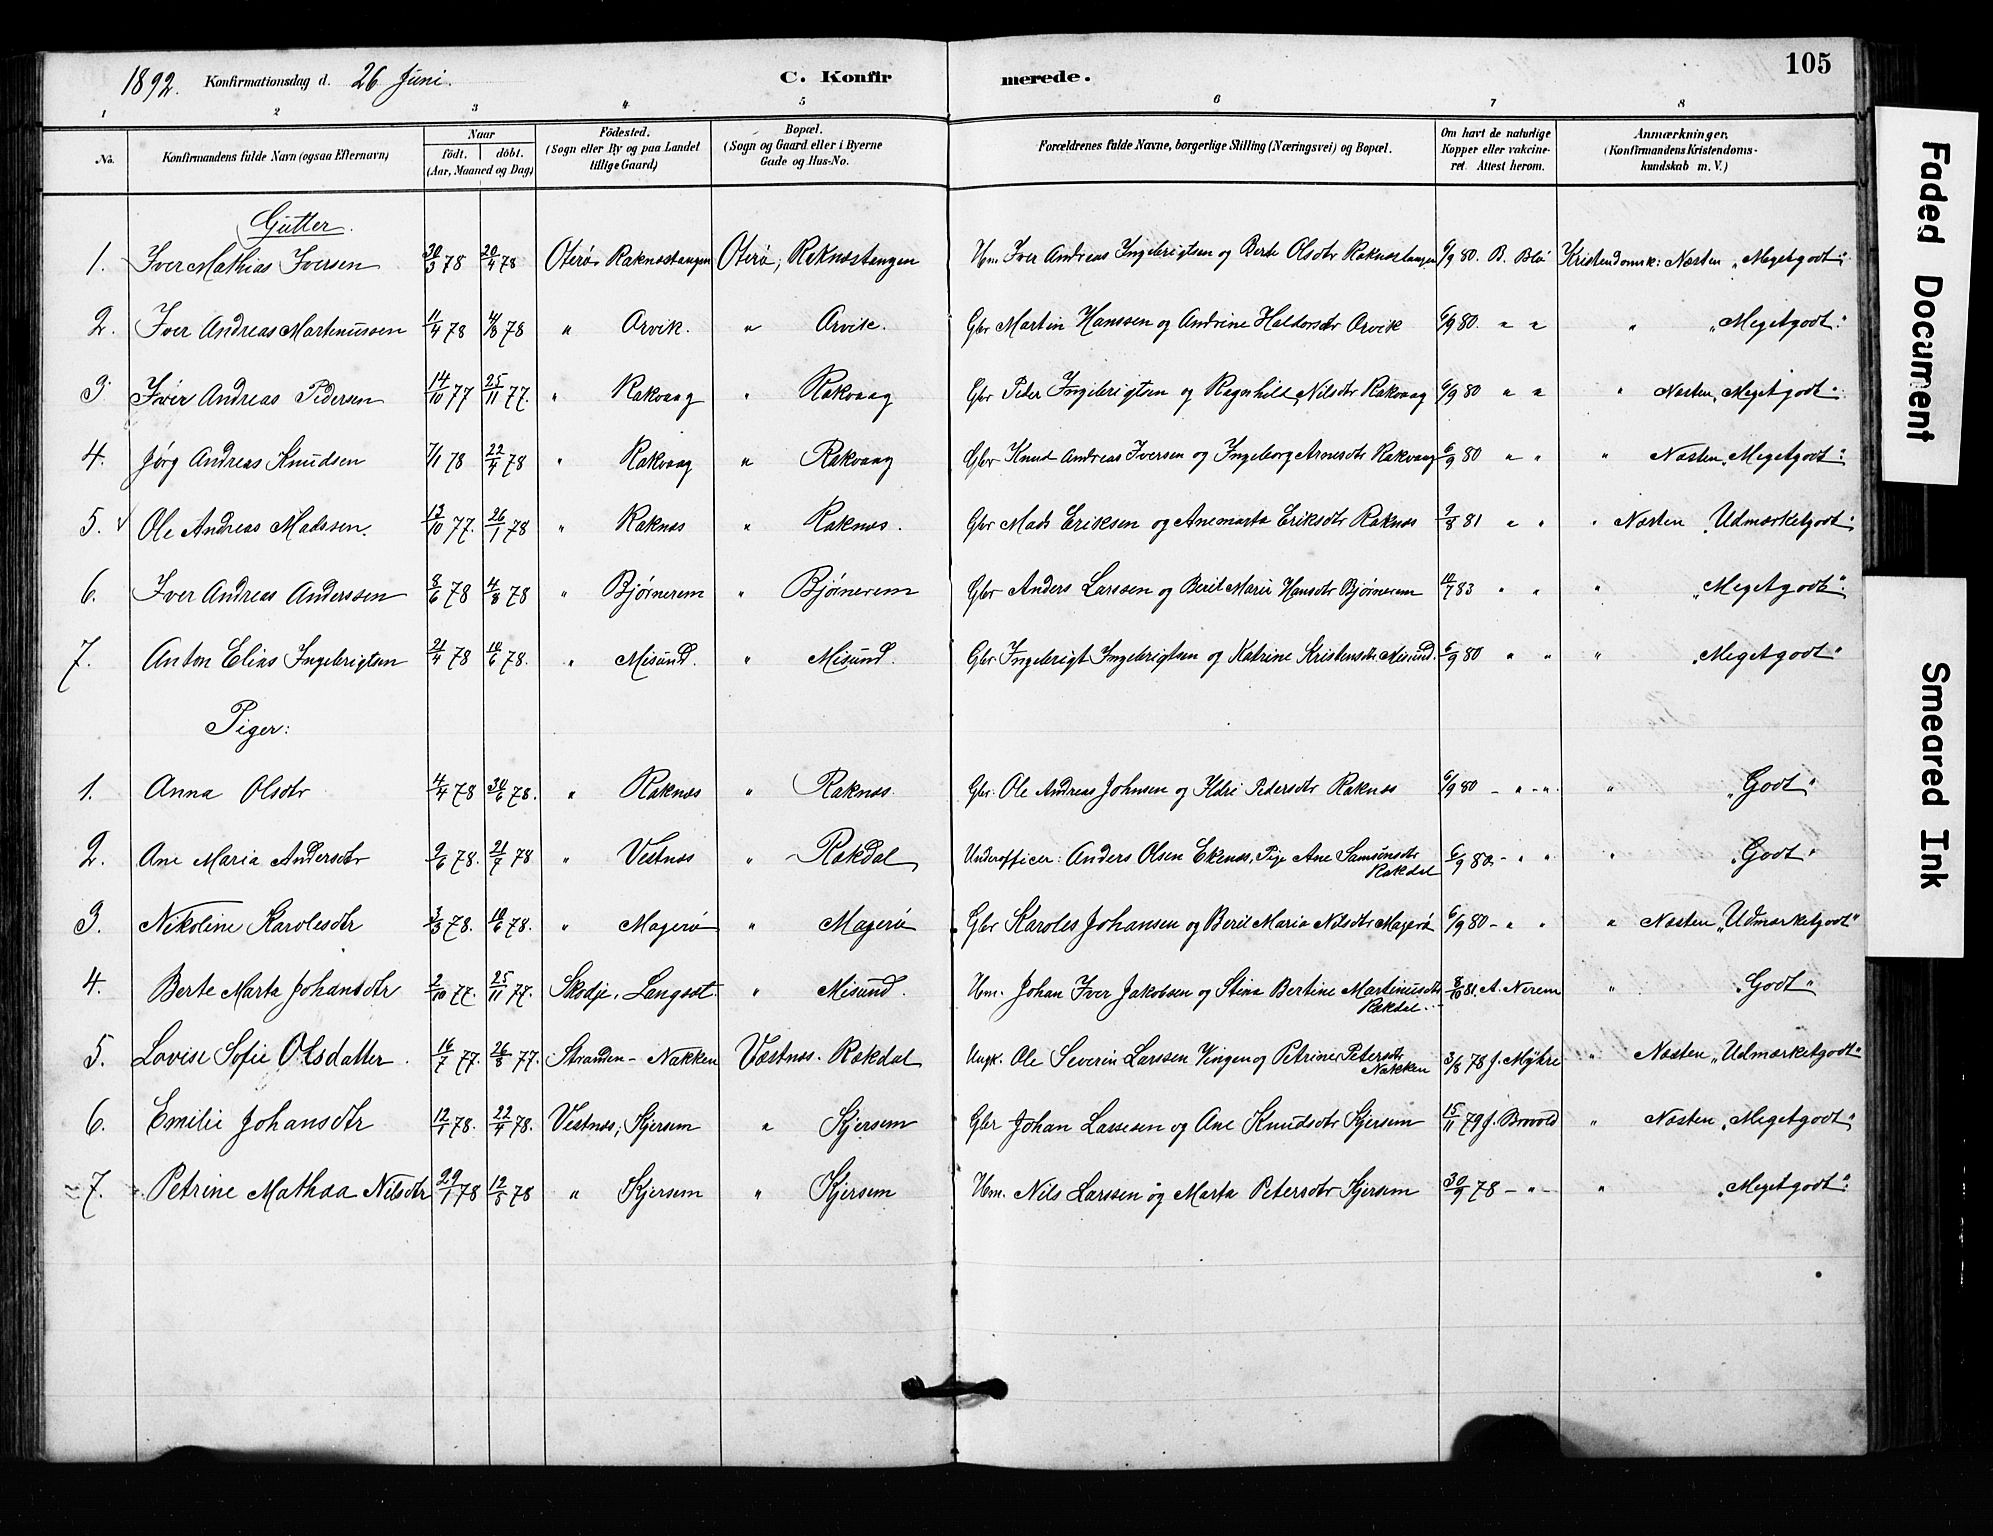 1892. Konfirmationsdag d. 26 Juni. C. Konfirmerede. 105
1 2 3 4 5 6 7 8
No. Konfirmandens fulde Navn (ogsaa Efternavn) Naar født. døbt. (Aar, Maaned og Dag) Fødested. (Sogn eller By og paa Landet tillige Gaard) Bopæl. (Sogn og Gaard eller i Byerne Gade og Hus-No. Forældrenes fulde Navne, borgerlige Stilling (Næringsvei) og Bopæl. Om havt de naturlige Kopper eller vakcineret. Attest herom. Anmærkninger, (Konfirmandens Kristendomskundskab m. V.)
Gutter.
1. Iver Mathias Iversen 30/3 78 20/4 78 Oterø, Raknæstangen Oterø, Raknæstangen Hm. Iver Andreas Ingebrigtsen og Berte Olsdtr Raknæstangen 6/9 80. B. Blø Kristendomsk: Næsten „Megetgodt“
2. Iver Andreas Martinussen 11/4 78 4/8 78 " Orvik. " Orvik. Gbr Martin Hanssen og Andrine Haldorsdtr Orvik 6/9 80. " " " „Megetgodt“
3 Iver Andreas Pedersen 14/10 77 25/11 77. " Rakvaag " Rakvaag Gbr Peder Ingebrigtsen og Ragnhild Nilsdtr Rakvaag 6/9 80 " " " Næsten „Megetgodt“
4. Jørg Andreas Knudsen 7/1 78 22/4 78 " Rakvaag " Rakvaag Gbr Knud Andreas Iversen og Ingeborg Arnesdtr Rakvaag 6/9 80 " " " Næsten „Megetgodt“
5. Ole Andreas Madssen. 13/10 77. 26/1 78 " Raknæs " Raknæs. Gbr Mads Eriksen og Anemarta Eriksdtr Raknæs 9/8 81 " " " Næsten „Udmærketgodt“
6. Iver Andreas Anderssen 8/6 78 4/8 78 " Bjørnerem " Bjørnerem Gbr Anders Larssen og Beril Marie Hansdtr Bjørnerem /7 83 " " " „Megetgodt“
7. Anton Elias Ingebrigtsen 21/4 78 10/6 78. " Misund. " Misund. Gbr Ingebrigt Ingebrigtsen og Katrine Kristensdtr Misund. 6/9 80 " " " „Megetgodt“
Piger:
1. Anna Olsdtr 4/4 78 30/6 78. " Raknæs " Raknæs. Gbr. Ole Andreas Johnsen og Ildri Pedersdtr Raknæs 6/9 80 - " - " " „Godt“
2. Ane Maria Andersdtr 9/6 78. 21/7 78 " Vestnæs " Rakdal Underofficer: Anders Olsen Ekenæs, Pige Ane Samsonsdtr 6/9 80. - " " " „Godt“
Rakdal
3. Nikoline Karolesdtr 3/3 78. 10/6 78. " Magerø " Magerø Gbr Karoles Johansen og Beril Maria Nilsdtr Magerø 6/9 80 - " " " Næsten „Udmærketgodt“
4. Berte Marta Johansdtr 2/10 77. 25/11 77. Skodje, Langset. " Misund. Hm. Johan Iver Jakobsen og Stina Bertine Martinusdtr 8/10 81. A. Nerem " „Godt“
Rakdal.
5. Lovise Sofie Olsdatter. 16/7 77. 26/8 77. Stranden - Nakken Vestnæs. Rakdal Ungk. Ole Severin Larssen Vingen og Petrine Petersdtr 3/8 78 J. Myhre " Næsten „Udmærketgodt“
Nakken
6. Emilie Johansdtr 12/1 78. 22/4 78. Vestnæs, Kjersem " Kjersem Gbr Johan Lassesen og Ane Knudsdtr Kjersem 15/11 79 J. Brovold " Næsten „Megetgodt“
7. Petrine Mathea Nilsdtr 29/1 78 12/5 78 " Kjersem " Kjersem Hm. Nils Larssen og Marta Petersdtr Kjersem 30/9 78 - " - " „Megetgodt“
Faded Document
Smeared Ink